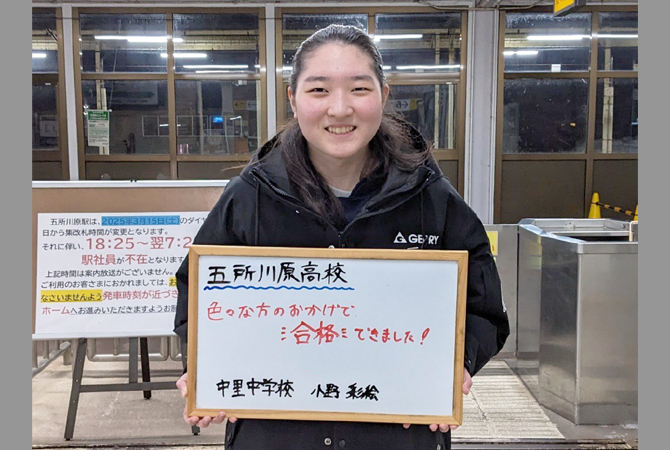 五所川原駅は、2025年3月15日(土)のダイヤ
日から集改札時間が変更となります。
それに伴い、18:25～翌7:2
駅社員が不在となります
上記時間は案内放送がございません。
ご利用のお客さまにおかれましては、お
なさいませんよう発車時刻が近づき
ホームへお進みいただきますようお
GERRY
五所川原高校
色々な方のおかげで
合格できました!
中里中学校 小野 彩絵